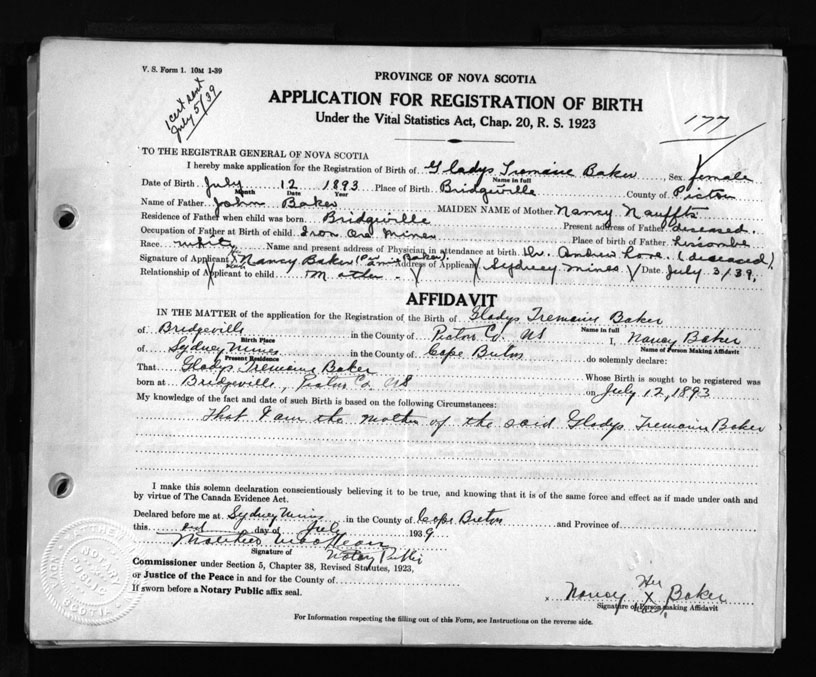 V. S. Form 1. 10M 1-39
PROVINCE OF NOVA SCOTIA
1 cert sent
July 5/39
APPLICATION FOR REGISTRATION OF BIRTH
Under the Vital Statistics Act, Chap. 20, R. S. 1923
177
TO THE REGISTRAR GENERAL OF NOVA SCOTIA
I hereby make application for the Registration of Birth of Gladys Tremaine Baker Sex female
Name in full
Date of Birth July 12 1893 Place of Birth Bridgeville County of Pictou
Month Date Year
Name of Father John Baker MAIDEN NAME of Mother Nancy Nauffts
Residence of Father when child was born Bridgeville Present address of Father deseased.
Occupation of Father at Birth of child Iron Ore Miner Place of birth of Father Liscombe
Race white Name and present address of Physician in attendance at birth Dr. Andrew Love (deceased).
Signature of Applicant X Nancy Baker Address of Applicant Sydney Mines Date July 3/39.
Relationship of Applicant to child Mother
AFFIDAVIT
IN THE MATTER of the application for the Registration of the Birth of Gladys Tremaine Baker
Name in full
of Bridgeville in the County of Pictou Co. NS I, Nancy Baker
Birth Place Name of Person Making Affidavit
of Sydney Mines in the County of Cape Breton do solemnly declare:
Present Residence
That Gladys Tremaine Baker Whose Birth is sought to be registered was
born at Bridgeville, Pictou Co. NS on July 12, 1893
My knowledge of the fact and date of such Birth is based on the following Circumstances:
That I am the mother of the said Gladys Tremaine Baker
I make this solemn declaration conscientiously believing it to be true, and knowing that it is of the same force and effect as if made under oath and
by virtue of The Canada Evidence Act.
Declared before me at Sydney Mines in the County of Cape Breton and Province of
this 3rd day of July 1939
Signature of Notary Public
Commissioner under Section 5, Chapter 38, Revised Statutes, 1923,
or Justice of the Peace in and for the County of
If sworn before a Notary Public affix seal.
Nancy Her X Baker
mark
Signature of Person making Affidavit
NOTARY PUBLIC
NOVA SCOTIA
For Information respecting the filling out of this Form, see Instructions on the reverse side.